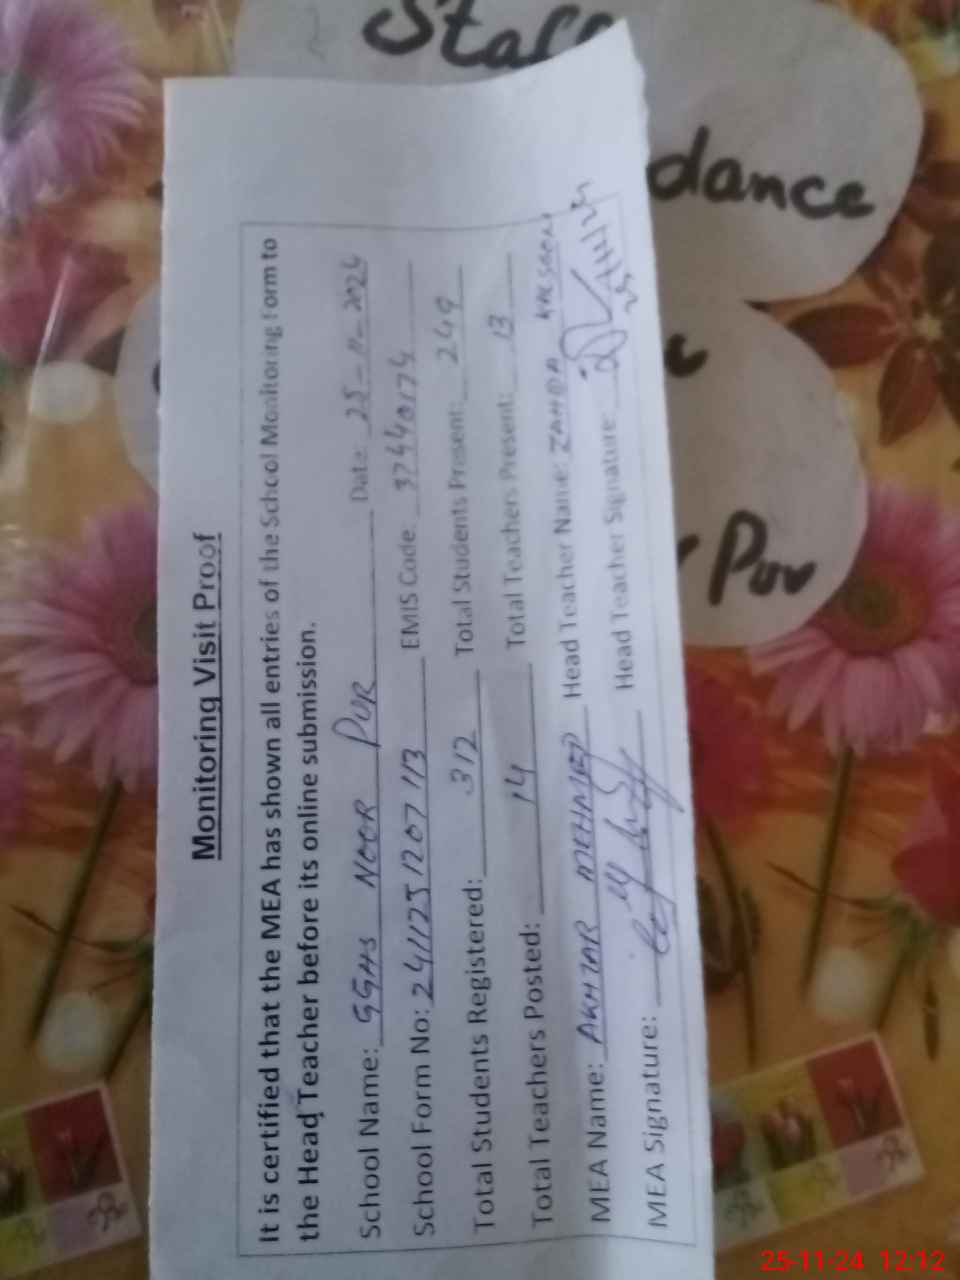 Staff
dance
Pur
Monitoring Visit Proof
It is certified that the MEA has shown all entries of the School Monitoring Form to
the Head Teacher before its online submission.
School Name: GGHS NOOR PUR Date: 25-11-2024
School Form No: 2411251207113 EMIS Code: 37440174
Total Students Registered: 312 Total Students Present: 249
Total Teachers Posted: 14 Total Teachers Present: 13
MEA Name: AKHTAR MEHMED Head Teacher Name: ZAHIDA
MEA Signature: Head Teacher Signature:
25-11-24 12:12